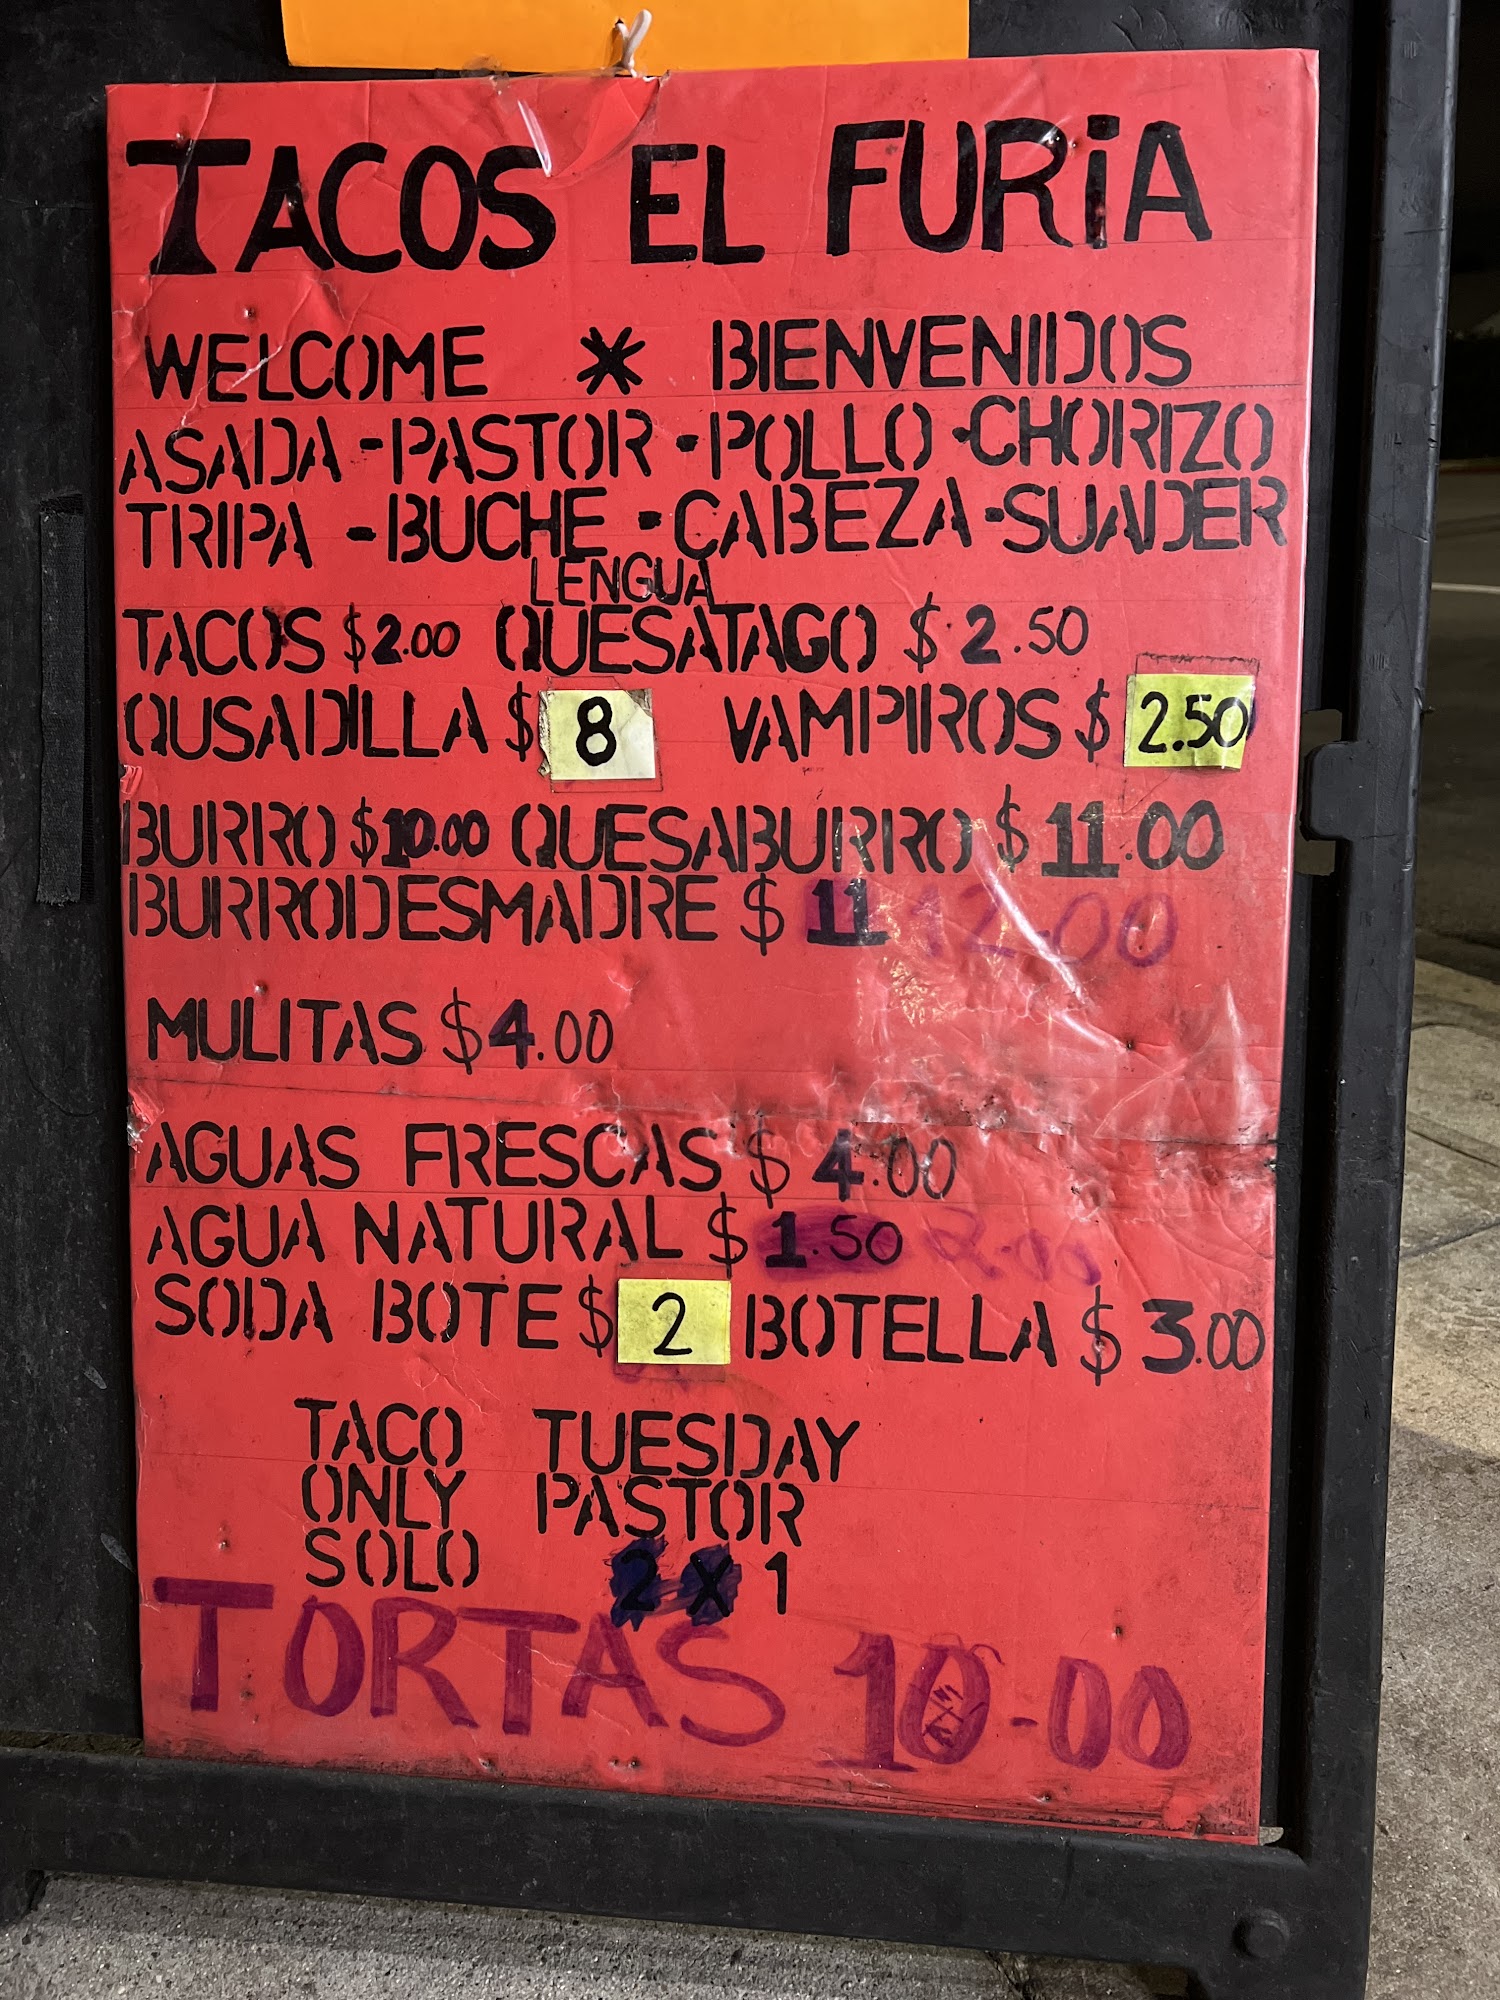 TACOS EL FURiA
WELCOME * BIENVENIDOS
ASADA - PASTOR - POLLO - CHORIZO
TRIPA - BUCHE - CABEZA - SUADER
LENGUA
TACOS $2.00 QUESATAGO $2.50
QUSADILLA $8 VAMPIROS $2.50
BURRO $10.00 QUESABURRO $11.00
BURRODESMADRE $11 12.00
MULITAS $4.00
AGUAS FRESCAS $4.00
AGUA NATURAL $1.50 2.00
SODA BOTE $2 BOTELLA $3.00
TACO TUESDAY
ONLY PASTOR
SOLO 2 X 1
TORTAS 10-00